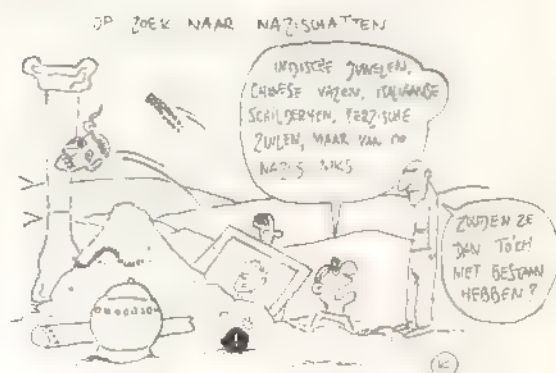 OP ZOEK NAAR NAZISCHATTEN
INDISCHE JUWELEN,
CHINESE VAZEN, ITALIAANSE
SCHILDERYEN, PERZISCHE
ZUILEN, MAAR VAN DE
NAZIS NIKS
ZOUDEN ZE
DAN TOCH
NIET BESTAAN
HEBBEN?
K